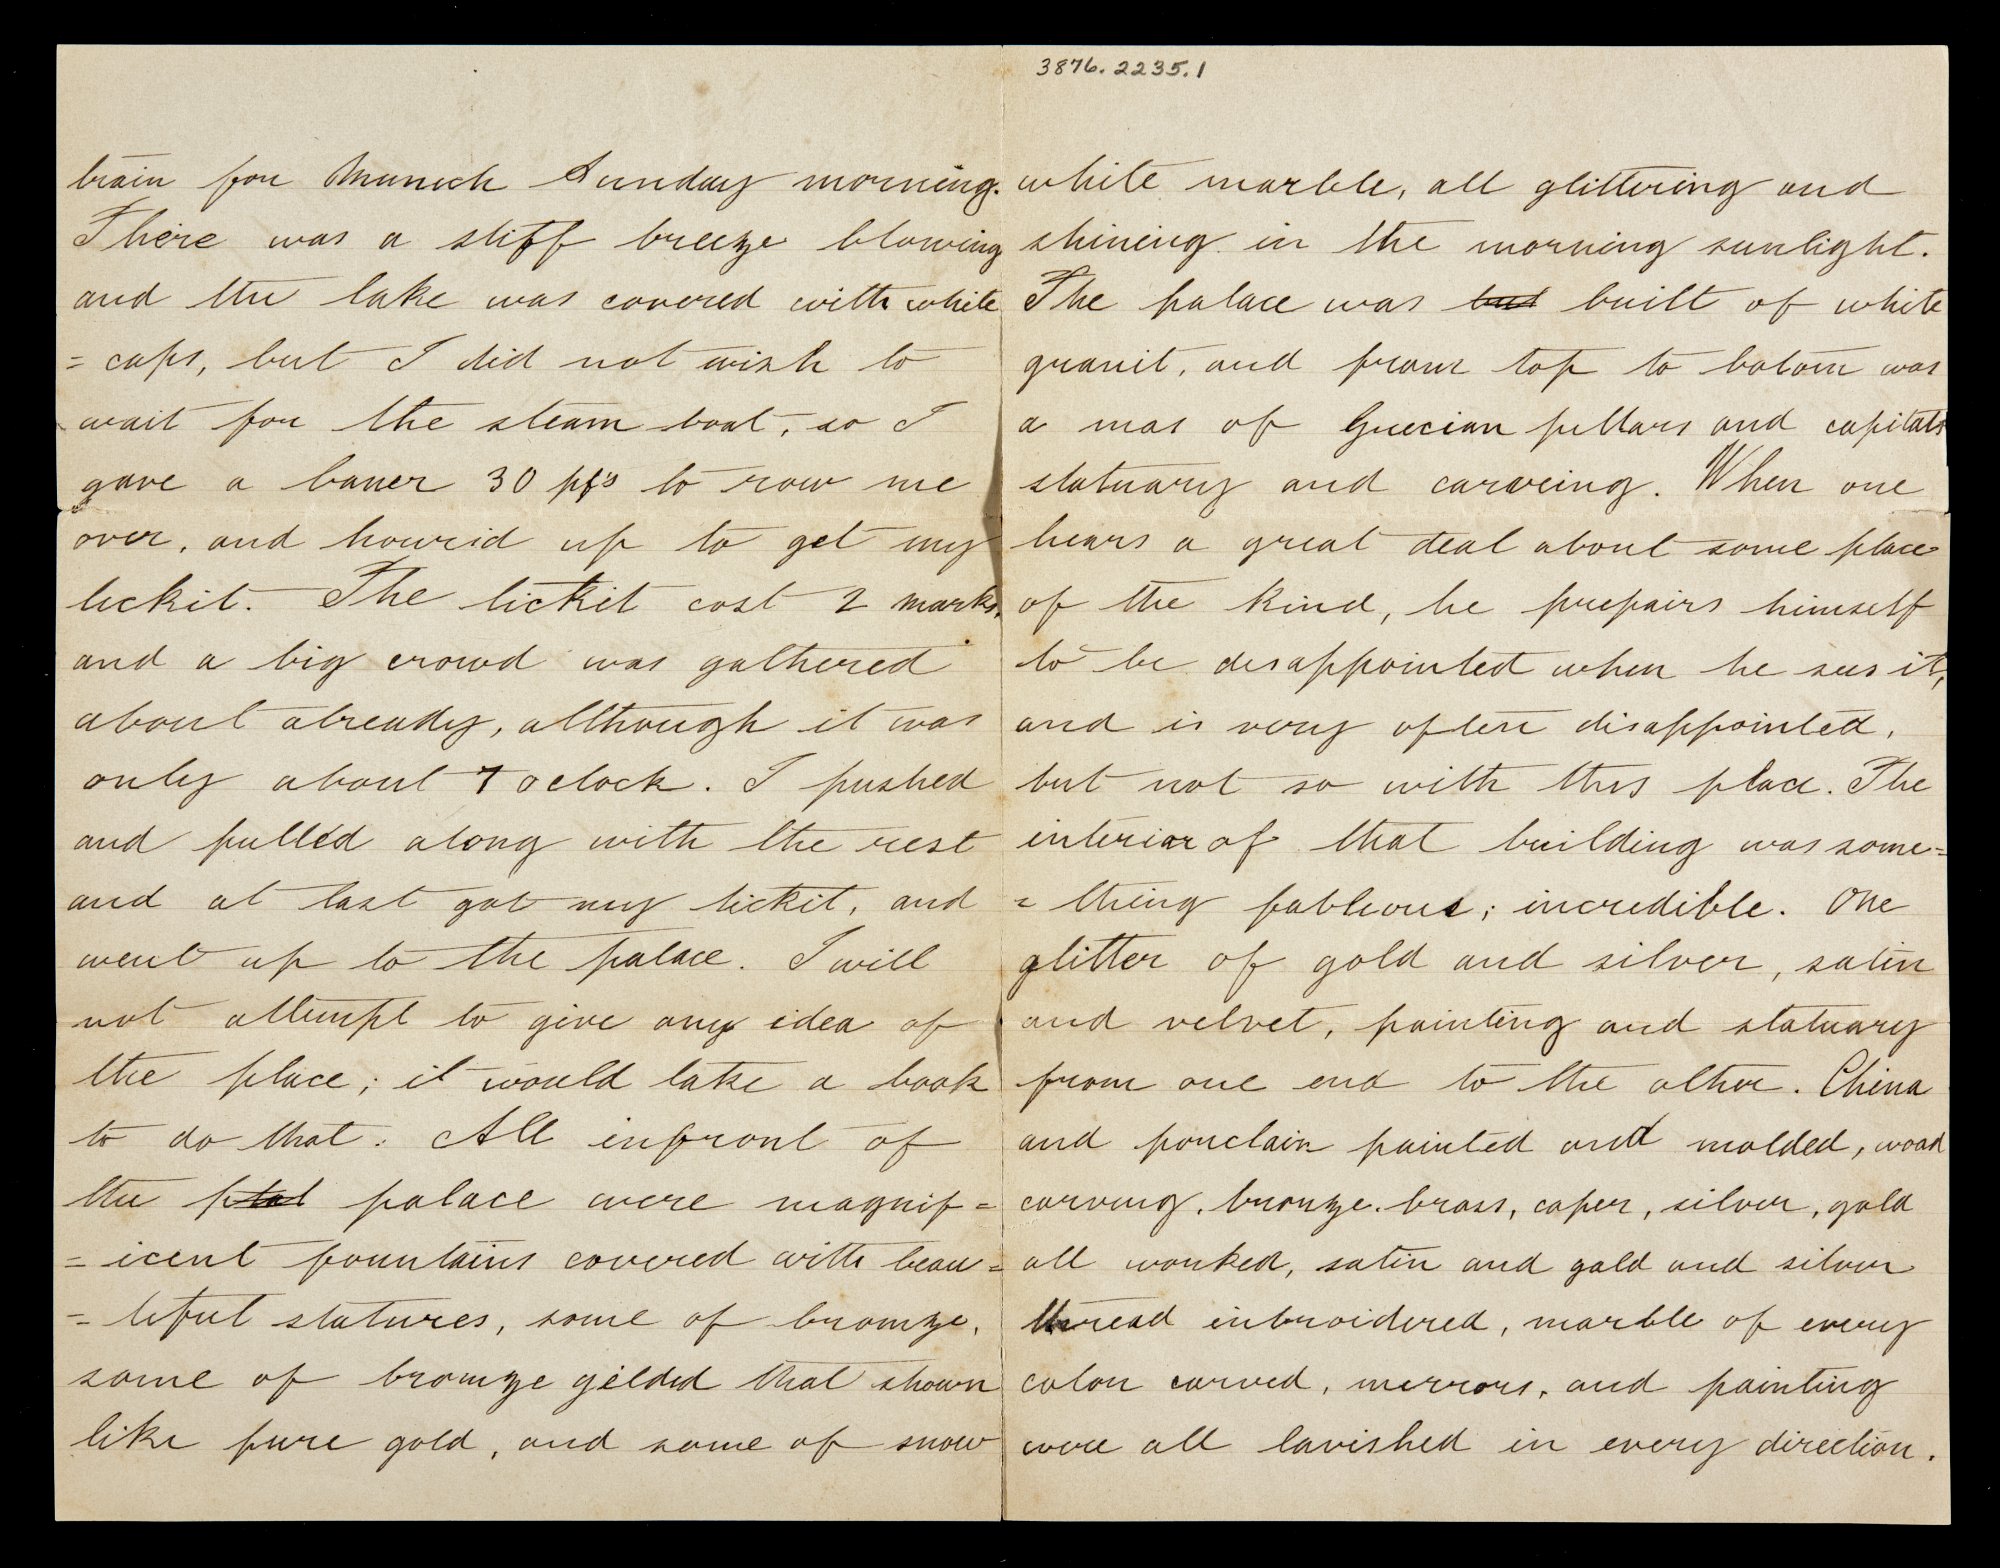 train for Munich Sunday morning.
There was a stiff breeze blowing
and the lake was covered with white
= caps, but I did not wish to
wait for the steam boat, so I
gave a bauer 30 pfs to row me
over, and howrid up to get my
tickit. The tickit cost 2 marks,
and a big crowd was gathered
about already, although it was
only about 7 oclock. I pushed
and pulled along with the rest
and at last got my tickit, and
went up to the palace. I will
not attempt to give any idea of
the place; it would take a book
to do that. All infront of
the palace were magnif=
= icent fountains covered with beau=
= tiful statures, some of bronze,
some of bronze gilded that shown
like pure gold, and some of snow
3876.2235.1
white marble, all glittering and
shining in the morning sunlight.
The palace was but built of white
granit, and from top to botom was
a mas of Grecian pillars and capitals
statuary and carveing. When one
hears a great deal about some place
of the kind, he prepairs himself
to be disappointed when he sees it,
and is very often disappointed,
but not so with this place. The
interior of that building was some=
= thing fableous; incredible. One
glitter of gold and silver, satin
and velvet, painting and statuary
from one end to the other. China
and porclain painted and molded, wood
carving, bronze. brass, coper, silver, gold
all worked, satin and gold and silver
thread inbroidered, marble of every
color carved, merrors, and painting
were all lavished in every direction.